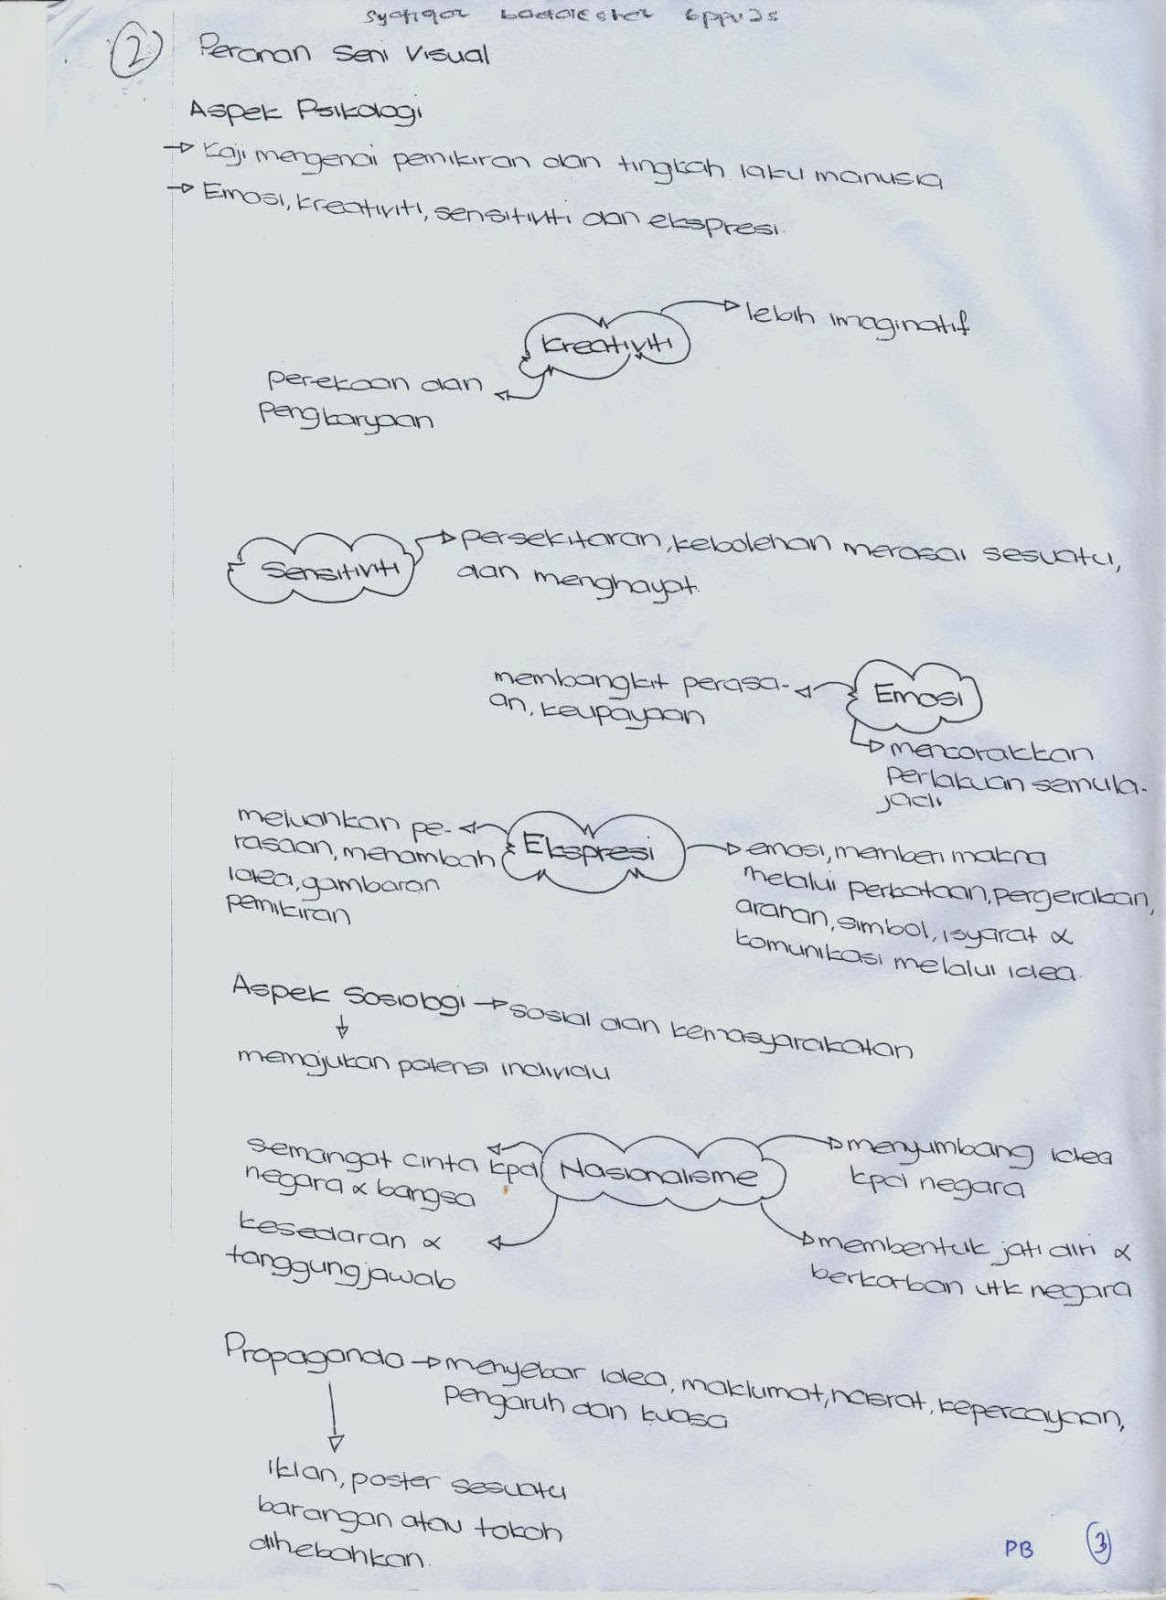 2 Peranan Seni Visual
Aspek Psikologi
→ Kaji mengenai pemikiran dan tingkah laku manusia
→ Emosi, kreativiti, sensitiviti dan ekspresi.
Kreativiti
→ lebih imaginatif
perekaan dan
pengkaryaan
Sensitiviti
→ persekitaran, kebolehan merasai sesuatu,
dan menghayat.
Emosi
membangkit perasa-
an, keupayaan
→ mencorakkan
perlakuan semula-
jadi.
Ekspresi
meluahkan pe-
rasaan, menambah
idea, gambaran
pemikiran
→ emosi, memberi makna
melalui perkataan, pergerakan,
arahan, simbol, isyarat &
komunikasi melalui idea.
Aspek Sosiologi → sosial dan kemasyarakatan
memajukan potensi individu
Nasionalisme
semangat cinta kpd
negara & bangsa
→ menyumbang idea
kpd negara
kesedaran &
tanggungjawab
→ membentuk jati diri &
berkorban utk negara
Propaganda → menyebar idea, maklumat, hasrat, kepercayaan,
pengaruh dan kuasa
iklan, poster sesuatu
barangan atau tokoh
dihebahkan.
PB 3